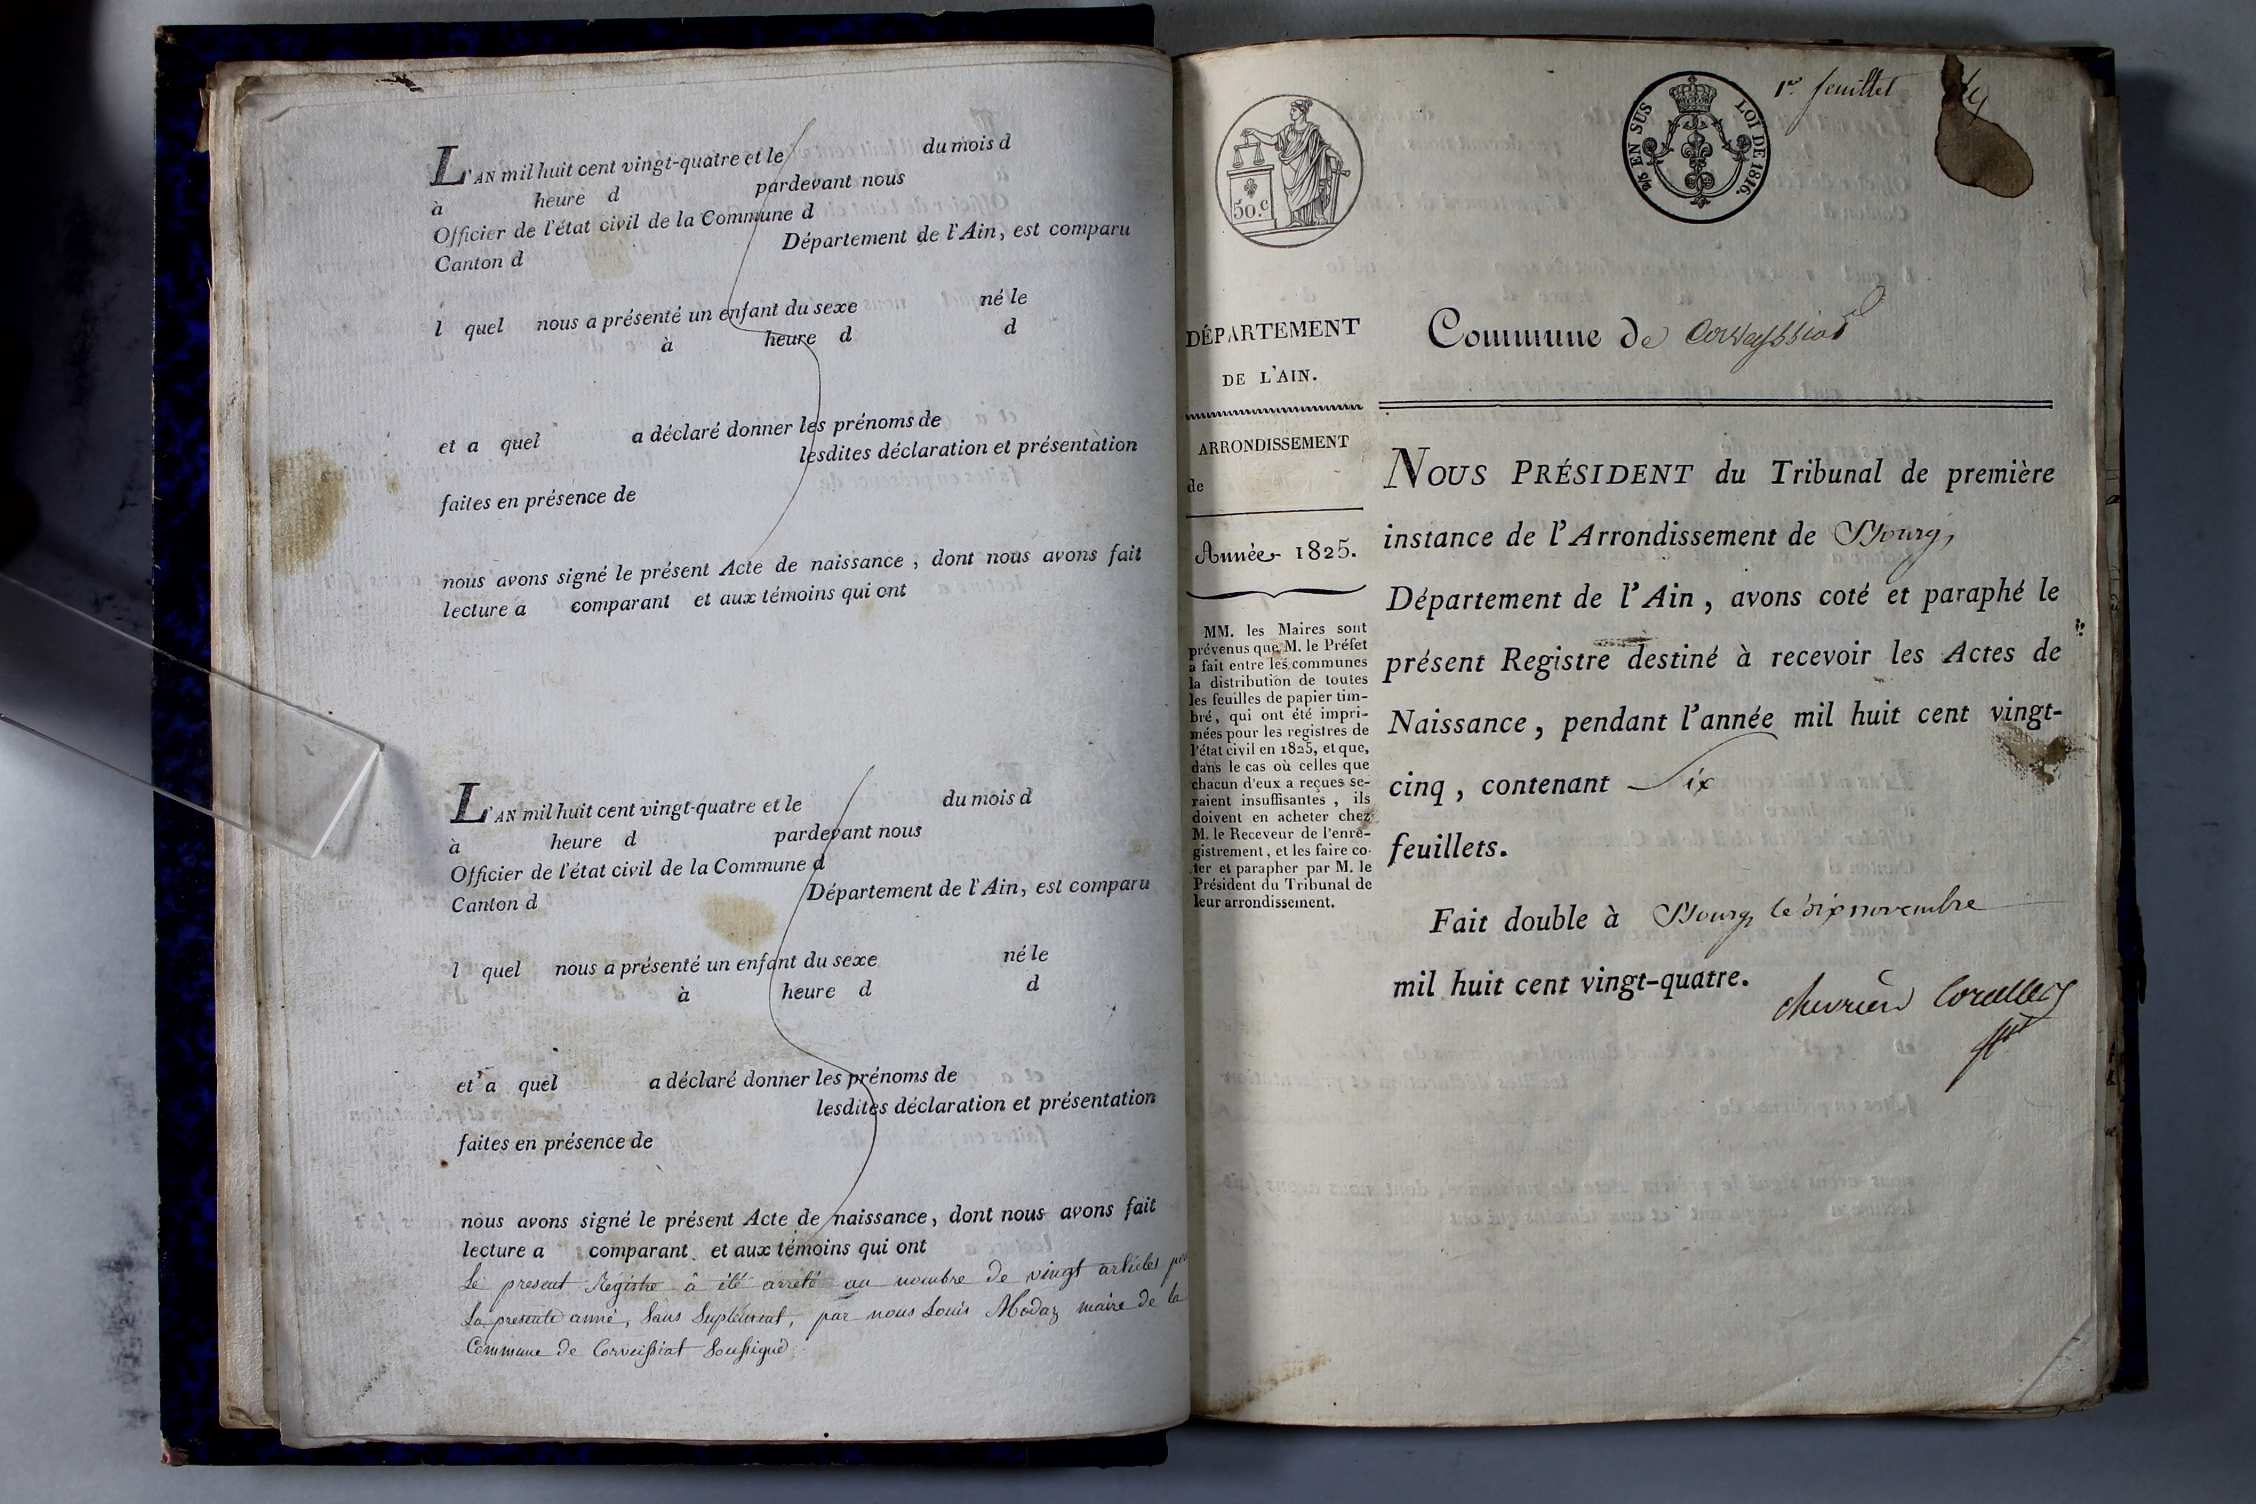 L'AN mil huit cent vingt-quatre et le du mois d
à heure d pardevant nous
Officier de l'état civil de la Commune d
Canton d Département de l'Ain, est comparu
l quel nous a présenté un enfant du sexe né le
à heure d d
et a quel a déclaré donner les prénoms de
lesdites déclaration et présentation
faites en présence de
nous avons signé le présent Acte de naissance, dont nous avons fait
lecture a comparant et aux témoins qui ont
L'AN mil huit cent vingt-quatre et le du mois d
à heure d pardevant nous
Officier de l'état civil de la Commune d
Canton d Département de l'Ain, est comparu
l quel nous a présenté un enfant du sexe né le
à heure d d
et a quel a déclaré donner les prénoms de
lesdites déclaration et présentation
faites en présence de
nous avons signé le présent Acte de naissance, dont nous avons fait
lecture a comparant et aux témoins qui ont
Le present Régistre à été arreté au nombre de vingt articles
La presente anné, Sans Suplément, par nous Louis Modaz maire de la
Commune de Corveissiat Soussigné
50.c
EN SUS LOI DE 1816.
1er feuillet
DÉPARTEMENT
DE L'AIN.
ARRONDISSEMENT
de
Année 1825.
MM. les Maires sont
prévenus que M. le Préfet
a fait entre les communes
la distribution de toutes
les feuilles de papier tim-
bré, qui ont été impri-
mées pour les registres de
l'état civil en 1825, et que,
dans le cas où celles que
chacun d'eux a reçues se-
raient insuffisantes, ils
doivent en acheter chez
M. le Receveur de l'enre-
gistrement, et les faire co-
ter et parapher par M. le
Président du Tribunal de
leur arrondissement.
Commune de Corveyssiat
NOUS PRÉSIDENT du Tribunal de première
instance de l'Arrondissement de Bourg,
Département de l'Ain, avons coté et paraphé le
présent Registre destiné à recevoir les Actes de
Naissance, pendant l'année mil huit cent vingt-
cinq, contenant Six
feuillets.
Fait double à Bourg, le dix novembre
mil huit cent vingt-quatre.